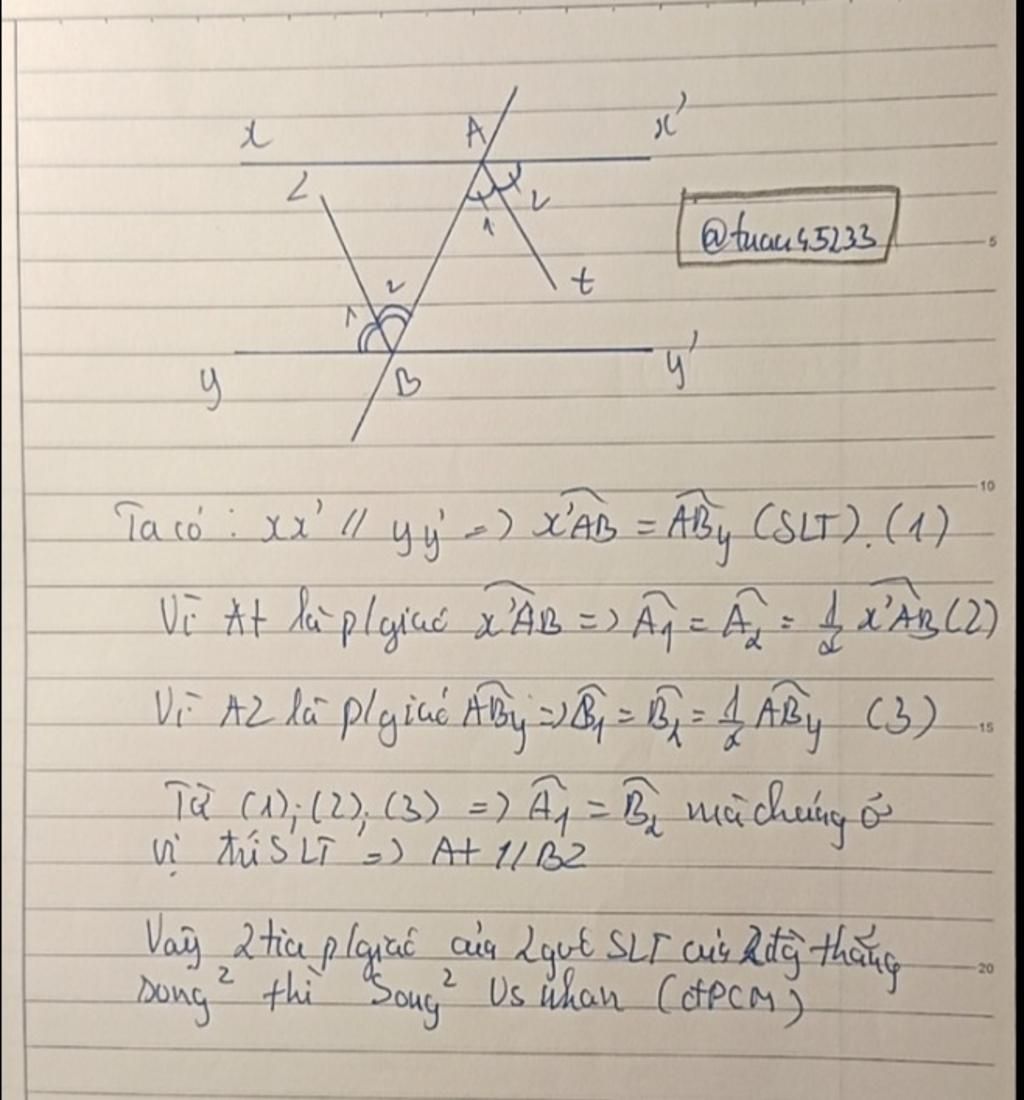 x A x'
z
@tuan45233
5
1 2
t
1 2
y B y'
10
Ta có : xx' // yy' => x'AB = ABy (SLT). (1)
Vì At là p/giác x'AB => A1 = A2 = 1/2 x'AB (2)
Vì Az là p/giác ABy => B1 = B2 = 1/2 ABy (3)
15
Từ (1); (2); (3) => A1 = B2 mà chúng ở
vị trí SLT => At // Bz
Vậy 2 tia p/giác của 2 góc SLT của 2 đg thẳng
20
song² thì song² Vs nhau (đPCM)